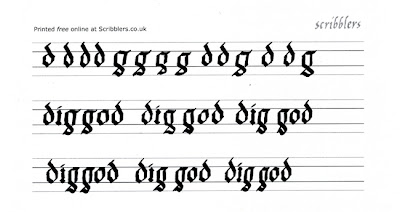 Printed free online at Scribblers.co.uk
scribblers
d d d d g g g g d d g d d g
dig god dig god dig god
dig god dig god dig god